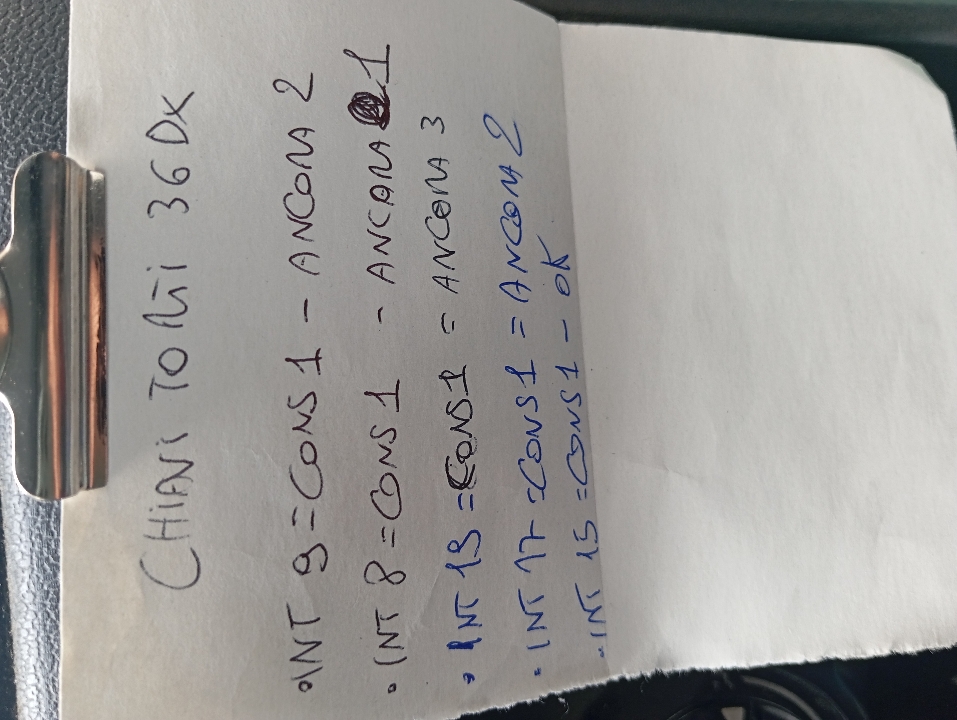 CHIANI TOMI 36 DX
• INT 9 = CONS 1 - ANCORA 2
• INT 8 = CONS 1 - ANCORA 1
• INT 19 = CONS 1 = ANCORA 3
• INT 17 = CONS 1 = ANCORA 2
• INT 15 = CONS 1 - OK